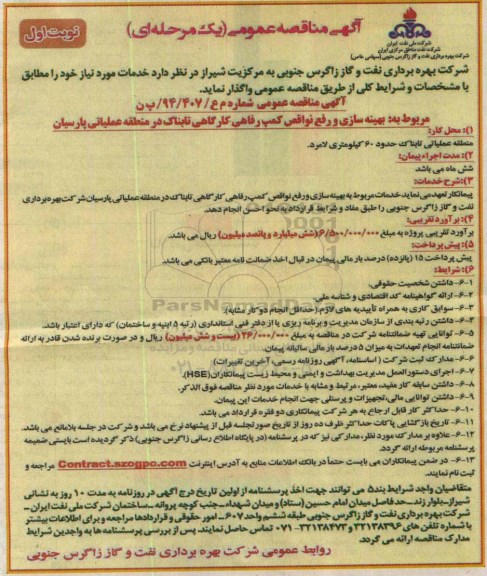 نوبت اول
آگهی مناقصه عمومی (یک مرحله‌ای)
شرکت ملی نفت ایران
شرکت نفت مناطق مرکزی ایران
شرکت بهره برداری نفت و گاز زاگرس جنوبی (سهامی خاص)
شرکت بهره برداری نفت و گاز زاگرس جنوبی به مرکزیت شیراز در نظر دارد خدمات مورد نیاز خود را مطابق
با مشخصات و شرایط کلی از طریق مناقصه عمومی واگذار نماید.
آگهی مناقصه عمومی شماره م ع/ ۹۴/۴۰۷/ پ ن
مربوط به: بهینه سازی و رفع نواقص کمپ رفاهی کارگاهی تابناک در منطقه عملیاتی پارسیان
۱): محل کار:
منطقه عملیاتی تابناک حدود ۶۰ کیلومتری لامرد.
۲): مدت اجراء پیمان:
شش ماه می باشد
۳): شرح خدمات:
پیمانکار تعهد می نماید خدمات مربوط به بهینه سازی و رفع نواقص کمپ رفاهی کارگاهی تابناک در منطقه عملیاتی پارسیان شرکت بهره برداری
نفت و گاز زاگرس جنوبی را طبق مفاد و شرایط قرارداد به نحو احسن انجام دهد.
۴): برآورد تقریبی:
برآورد تقریبی پروژه به مبلغ ۶/۵۰۰/۰۰۰/۰۰۰ (شش میلیارد و پانصد میلیون) ریال می باشد.
۵): پیش پرداخت:
پیش پرداخت ۱۵ (پانزده) درصد بار مالی پیمان در قبال اخذ ضمانت نامه معتبر بانکی می باشد.
۶): شرایط:
۱-۶- داشتن شخصیت حقوقی.
۲-۶- ارائه گواهینامه کد اقتصادی و شناسه ملی
۳-۶- سوابق کاری به همراه تأییدیه های لازم. (حداقل انجام دو کار مشابه)
۴-۶- داشتن رتبه بندی از سازمان مدیریت و برنامه ریزی یا از دفتر فنی استانداری (رتبه ۵ ابنیه و ساختمان) که دارای اعتبار باشد.
۵-۶- توانایی تهیه ضمانتنامه شرکت در مناقصه به مبلغ ۲۶/۰۰۰/۰۰۰ (بیست و شش میلیون) ریال و در صورت برنده شدن قادر به ارائه
ضمانتنامه انجام تعهدات به میزان ۵ درصد بار مالی سالیانه پیمان.
۶-۶- مدارک ثبت شرکت (اساسنامه، آگهی روزنامه رسمی، آخرین تغییرات)
۷-۶- اجرای دستورالعمل مدیریت بهداشت و ایمنی و محیط زیست پیمانکاران (HSE).
۸-۶- داشتن سابقه کار مفید، معتبر، مرتبط و مشابه با خدمات مورد نظر مناقصه فوق الذکر.
۹-۶- داشتن توانایی مالی، تجهیزات و پرسنلی جهت انجام خدمات این پیمان.
۱۰-۶- حداکثر کار قابل ارجاع به هر شرکت پیمانکاری دو فقره قرارداد می باشد.
۱۱-۶- تاریخ بازگشایی پاکات حداکثر ظرف ده روز از تاریخ صورتجلسه قبل از پیشنهاد نرخ می باشد و شرکت در جلسه بلامانع می باشد.
۱۲-۶- علاوه بر مدارک مورد نظر، مدارکی نیز که در پرسشنامه (در پایگاه اطلاع رسانی زاگرس جنوبی) ذکر گردیده است بایستی ضمیمه
پرسشنامه مربوطه ارائه گردد.
۱۳-۶- در ضمن پیمانکاران می بایست حتماً در بانک اطلاعات منابع به آدرس اینترنت Contract.szogpc.com مراجعه و
ثبت نام نمایند.
متقاضیان واجد شرایط بند ۶ می توانند جهت اخذ پرسشنامه از اولین تاریخ درج آگهی در روزنامه به مدت ۱۰ روز به نشانی
شیراز-بلوار زند-حد فاصل میدان امام حسین (ستاد) و میدان شهداء-جنب کوچه پروانه-ساختمان شرکت ملی نفت ایران-
شرکت بهره برداری نفت و گاز زاگرس جنوبی طبقه ششم واحد ۶۰۷-امور حقوقی و قراردادها مراجعه و برای اطلاعات بیشتر
با شماره تلفن های ۳۲۱۳۸۳۹۶ و ۳۲۱۳۸۴۷۳-۰۷۱ تماس حاصل نمایند. پس از بررسی پرسشنامه ها به واجدین شرایط
مدارک مناقصه ارائه می گردد.
روابط عمومی شرکت بهره برداری نفت و گاز زاگرس جنوبی
ParsNamadData